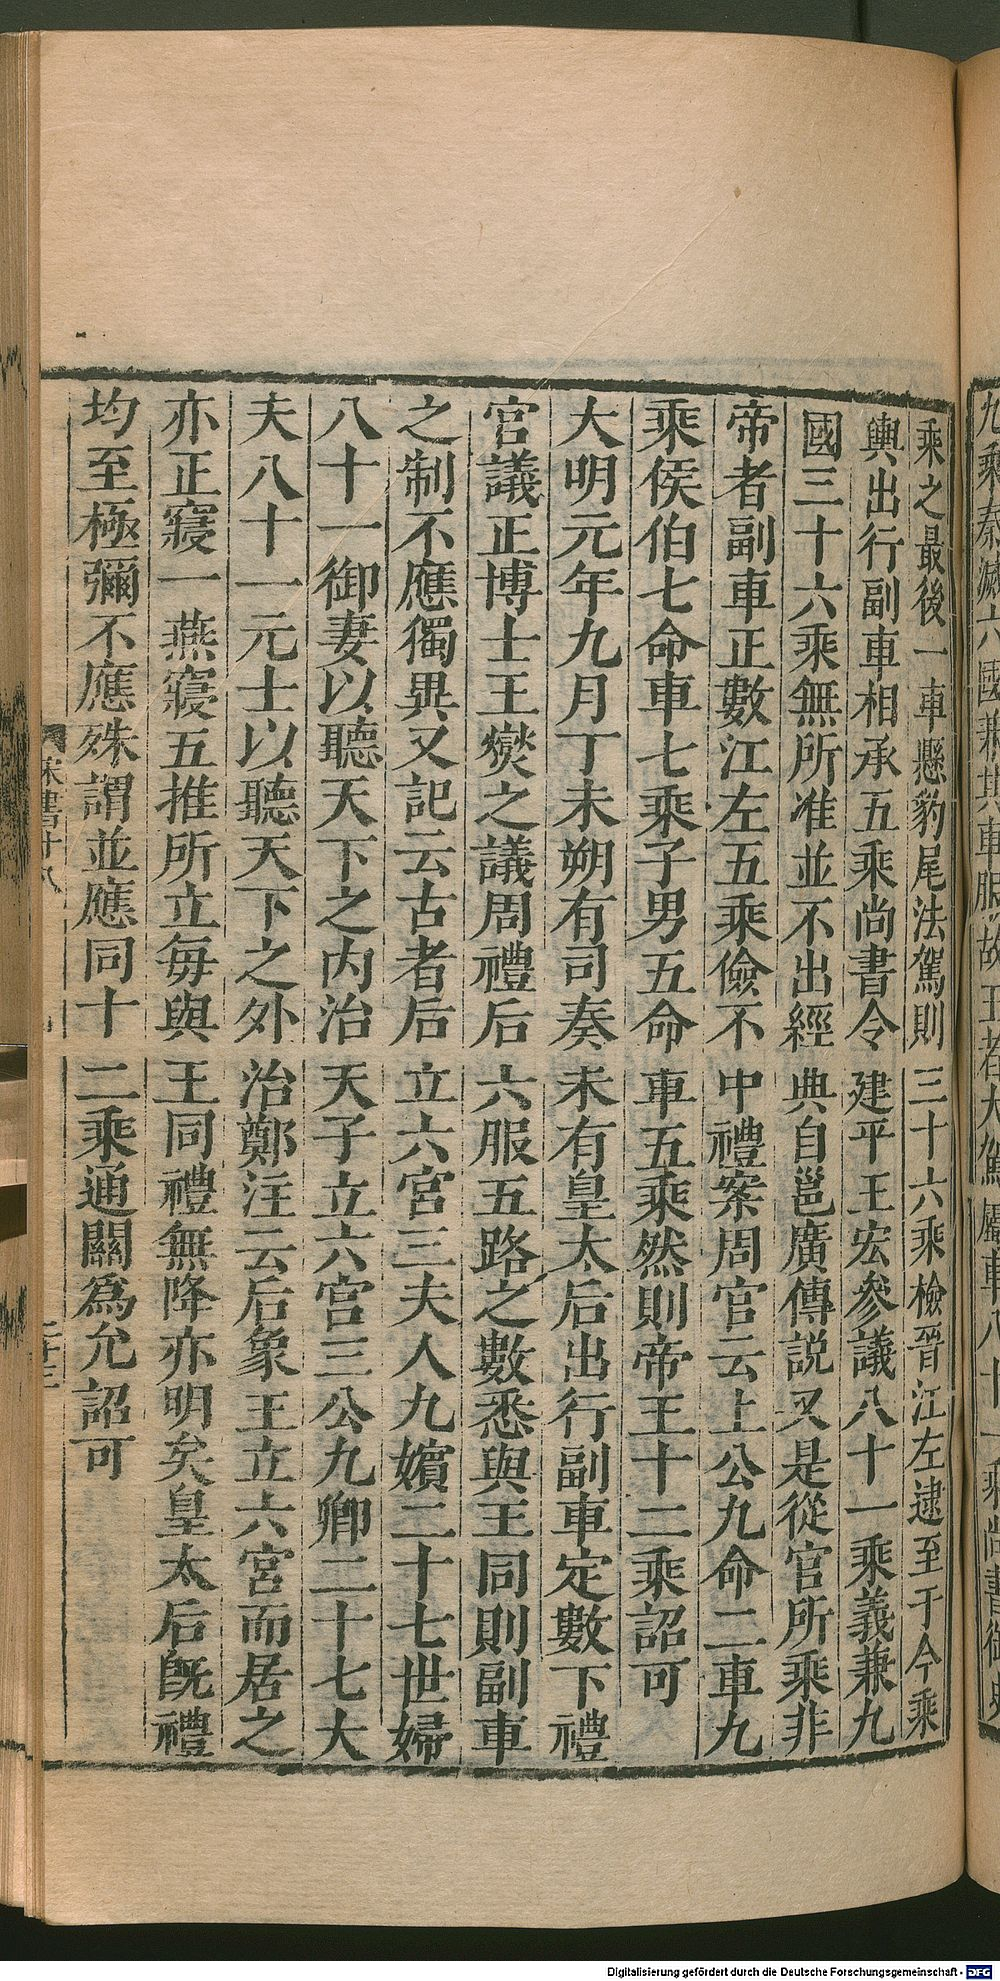 乘之最後一車懸豹尾法駕則三十六乘檢晉江左逮至于今乘
輿出行副車相承五乘尚書令建平王宏參議八十一乘義兼九
國三十六乘無所准並不出經典自邕廣傳説又是從官所乘非
帝者副車正數江左五乘儉不中禮案周官云上公九命二車九
乘侯伯七命車七乘子男五命車五乘然則帝王十二乘詔可
大明元年九月丁未朔有司奏未有皇太后出行副車定數下禮
官議正博士王燮之議周禮后六服五路之數悉與王同則副車
之制不應獨異又記云古者后立六宮三夫人九嬪二十七世婦
八十一御妻以聽天下之内治天子立六宮三公九卿二十七大
夫八十一元士以聽天下之外治鄭注云后象王立六宮而居之
亦正寢一燕寢五推所立每與王同禮無降亦明矣皇太后旣禮
均至極彌不應殊謂並應同十二乘通關爲允詔可
宋書十八
Digitalisierung gefördert durch die Deutsche Forschungsgemeinschaft - DFG